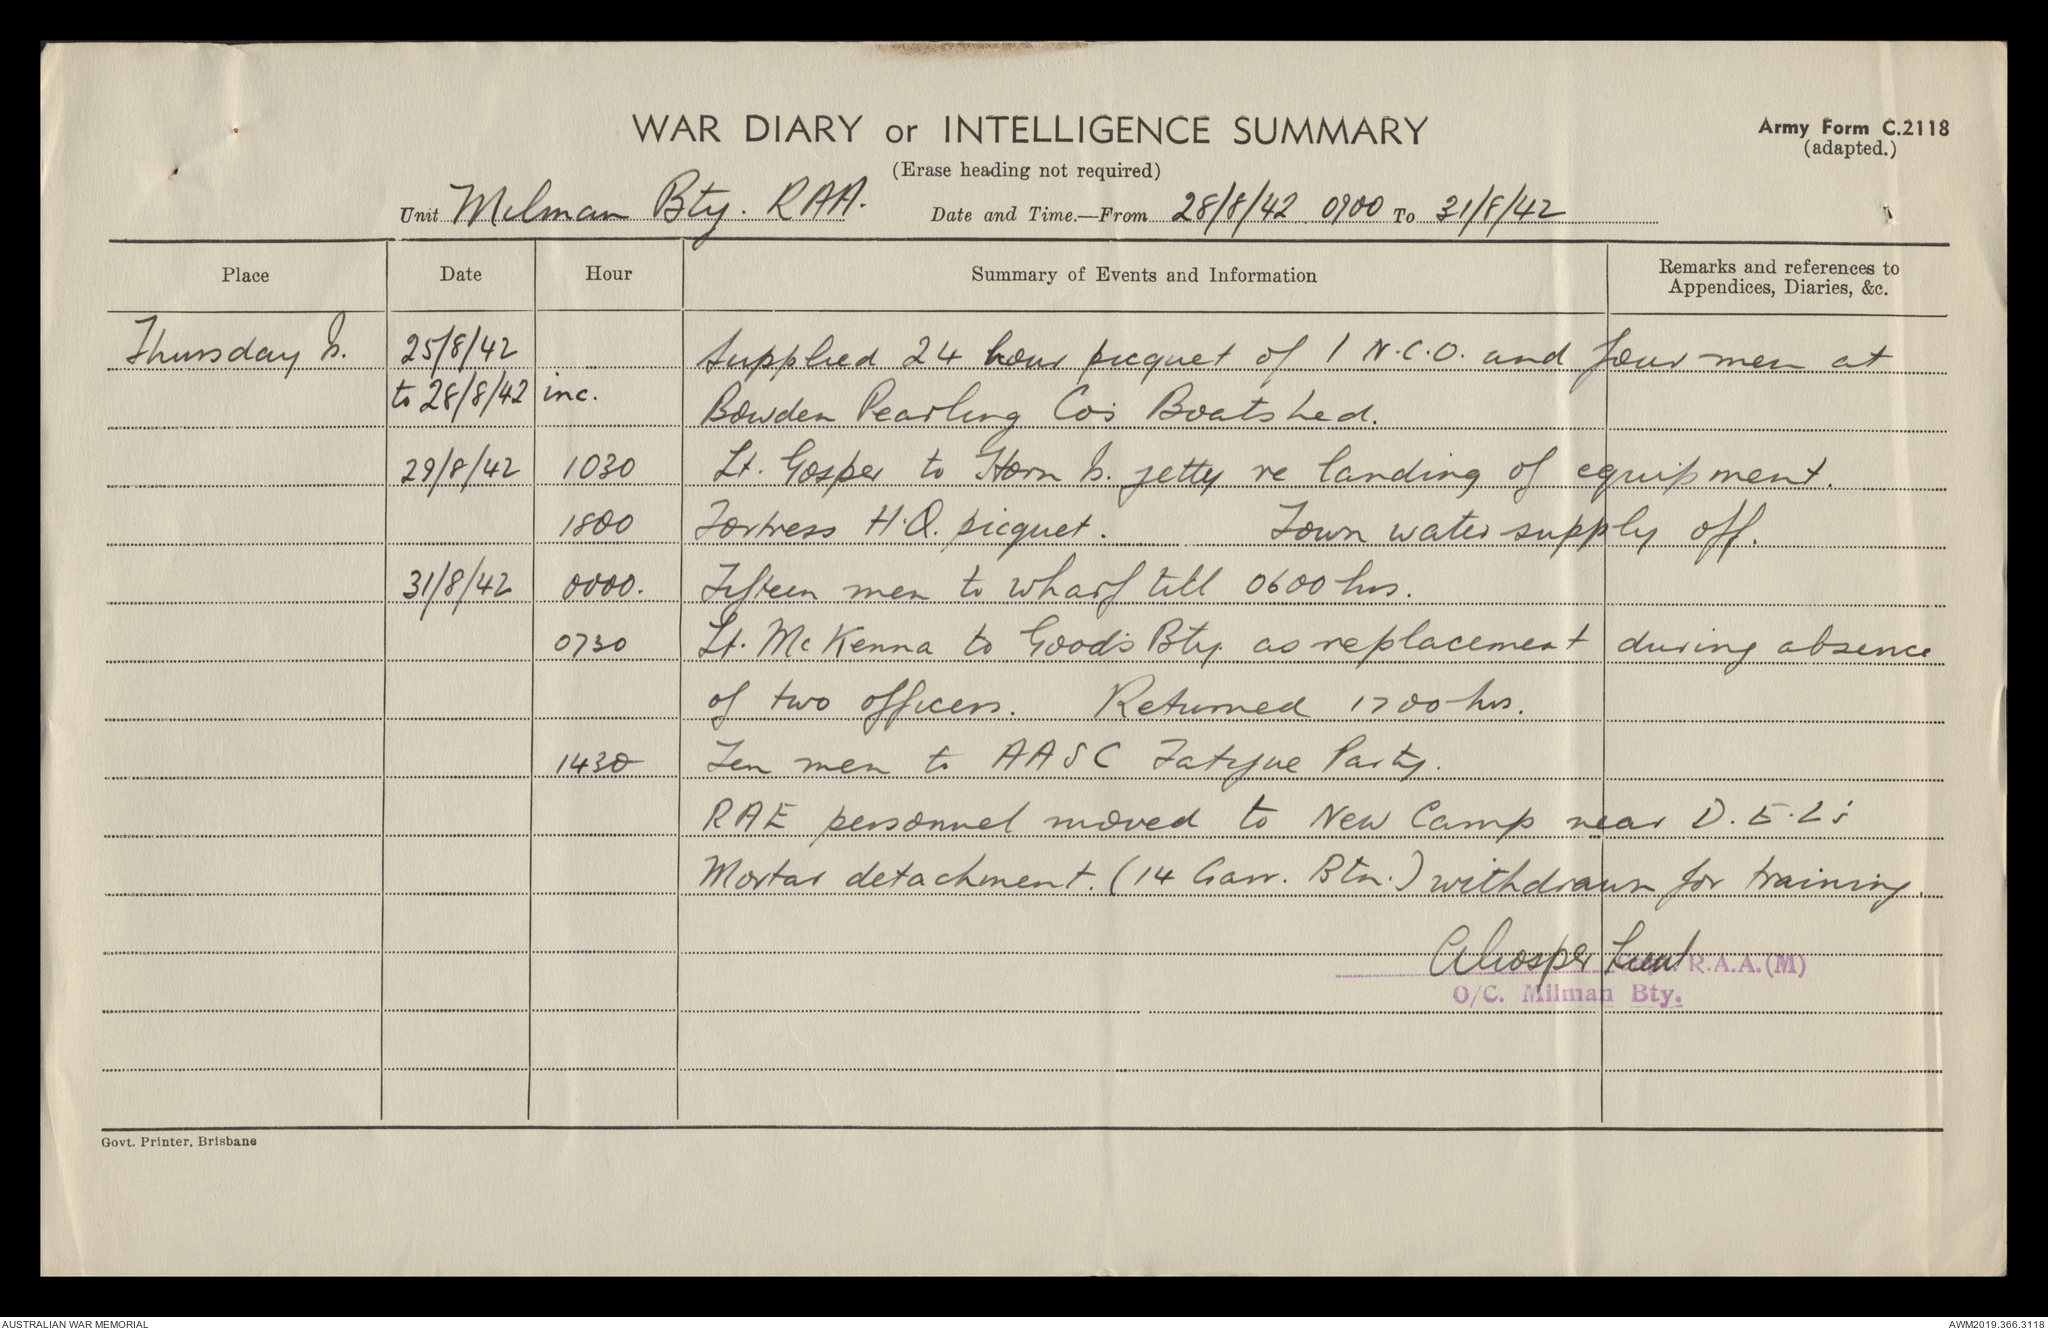 WAR DIARY or INTELLIGENCE SUMMARY
Army Form C.2118
(adapted.)
(Erase heading not required)
Unit Milman Bty. RAA. Date and Time.—From 28/8/42 0900 To 31/8/42
Place Date Hour Summary of Events and Information Remarks and references to
Appendices, Diaries, &c.
Thursday Is. 25/8/42 Supplied 24 hour picquet of 1 N.C.O. and four men at
to 28/8/42 inc. Bowden Pearling Co's Boatshed.
29/8/42 1030 Lt. Gosper to Horn Is. jetty re landing of equipment.
1800 Fortress H.Q. picquet. Town water supply off.
31/8/42 0000. Fifteen men to wharf till 0600 hrs.
0730 Lt. McKenna to Goods Bty. as replacement during absence
of two officers. Returned 1700 hrs.
1430 Ten men to AASC Fatigue Party.
RAE personnel moved to New Camp near D.E.L's
Mortar detachment. (14 Garr. Btn.) withdrawn for training.
Gosper Lieut R.A.A.(M)
O/C. Milman Bty.
Govt. Printer, Brisbane
AUSTRALIAN WAR MEMORIAL
AWM2019.366.3118